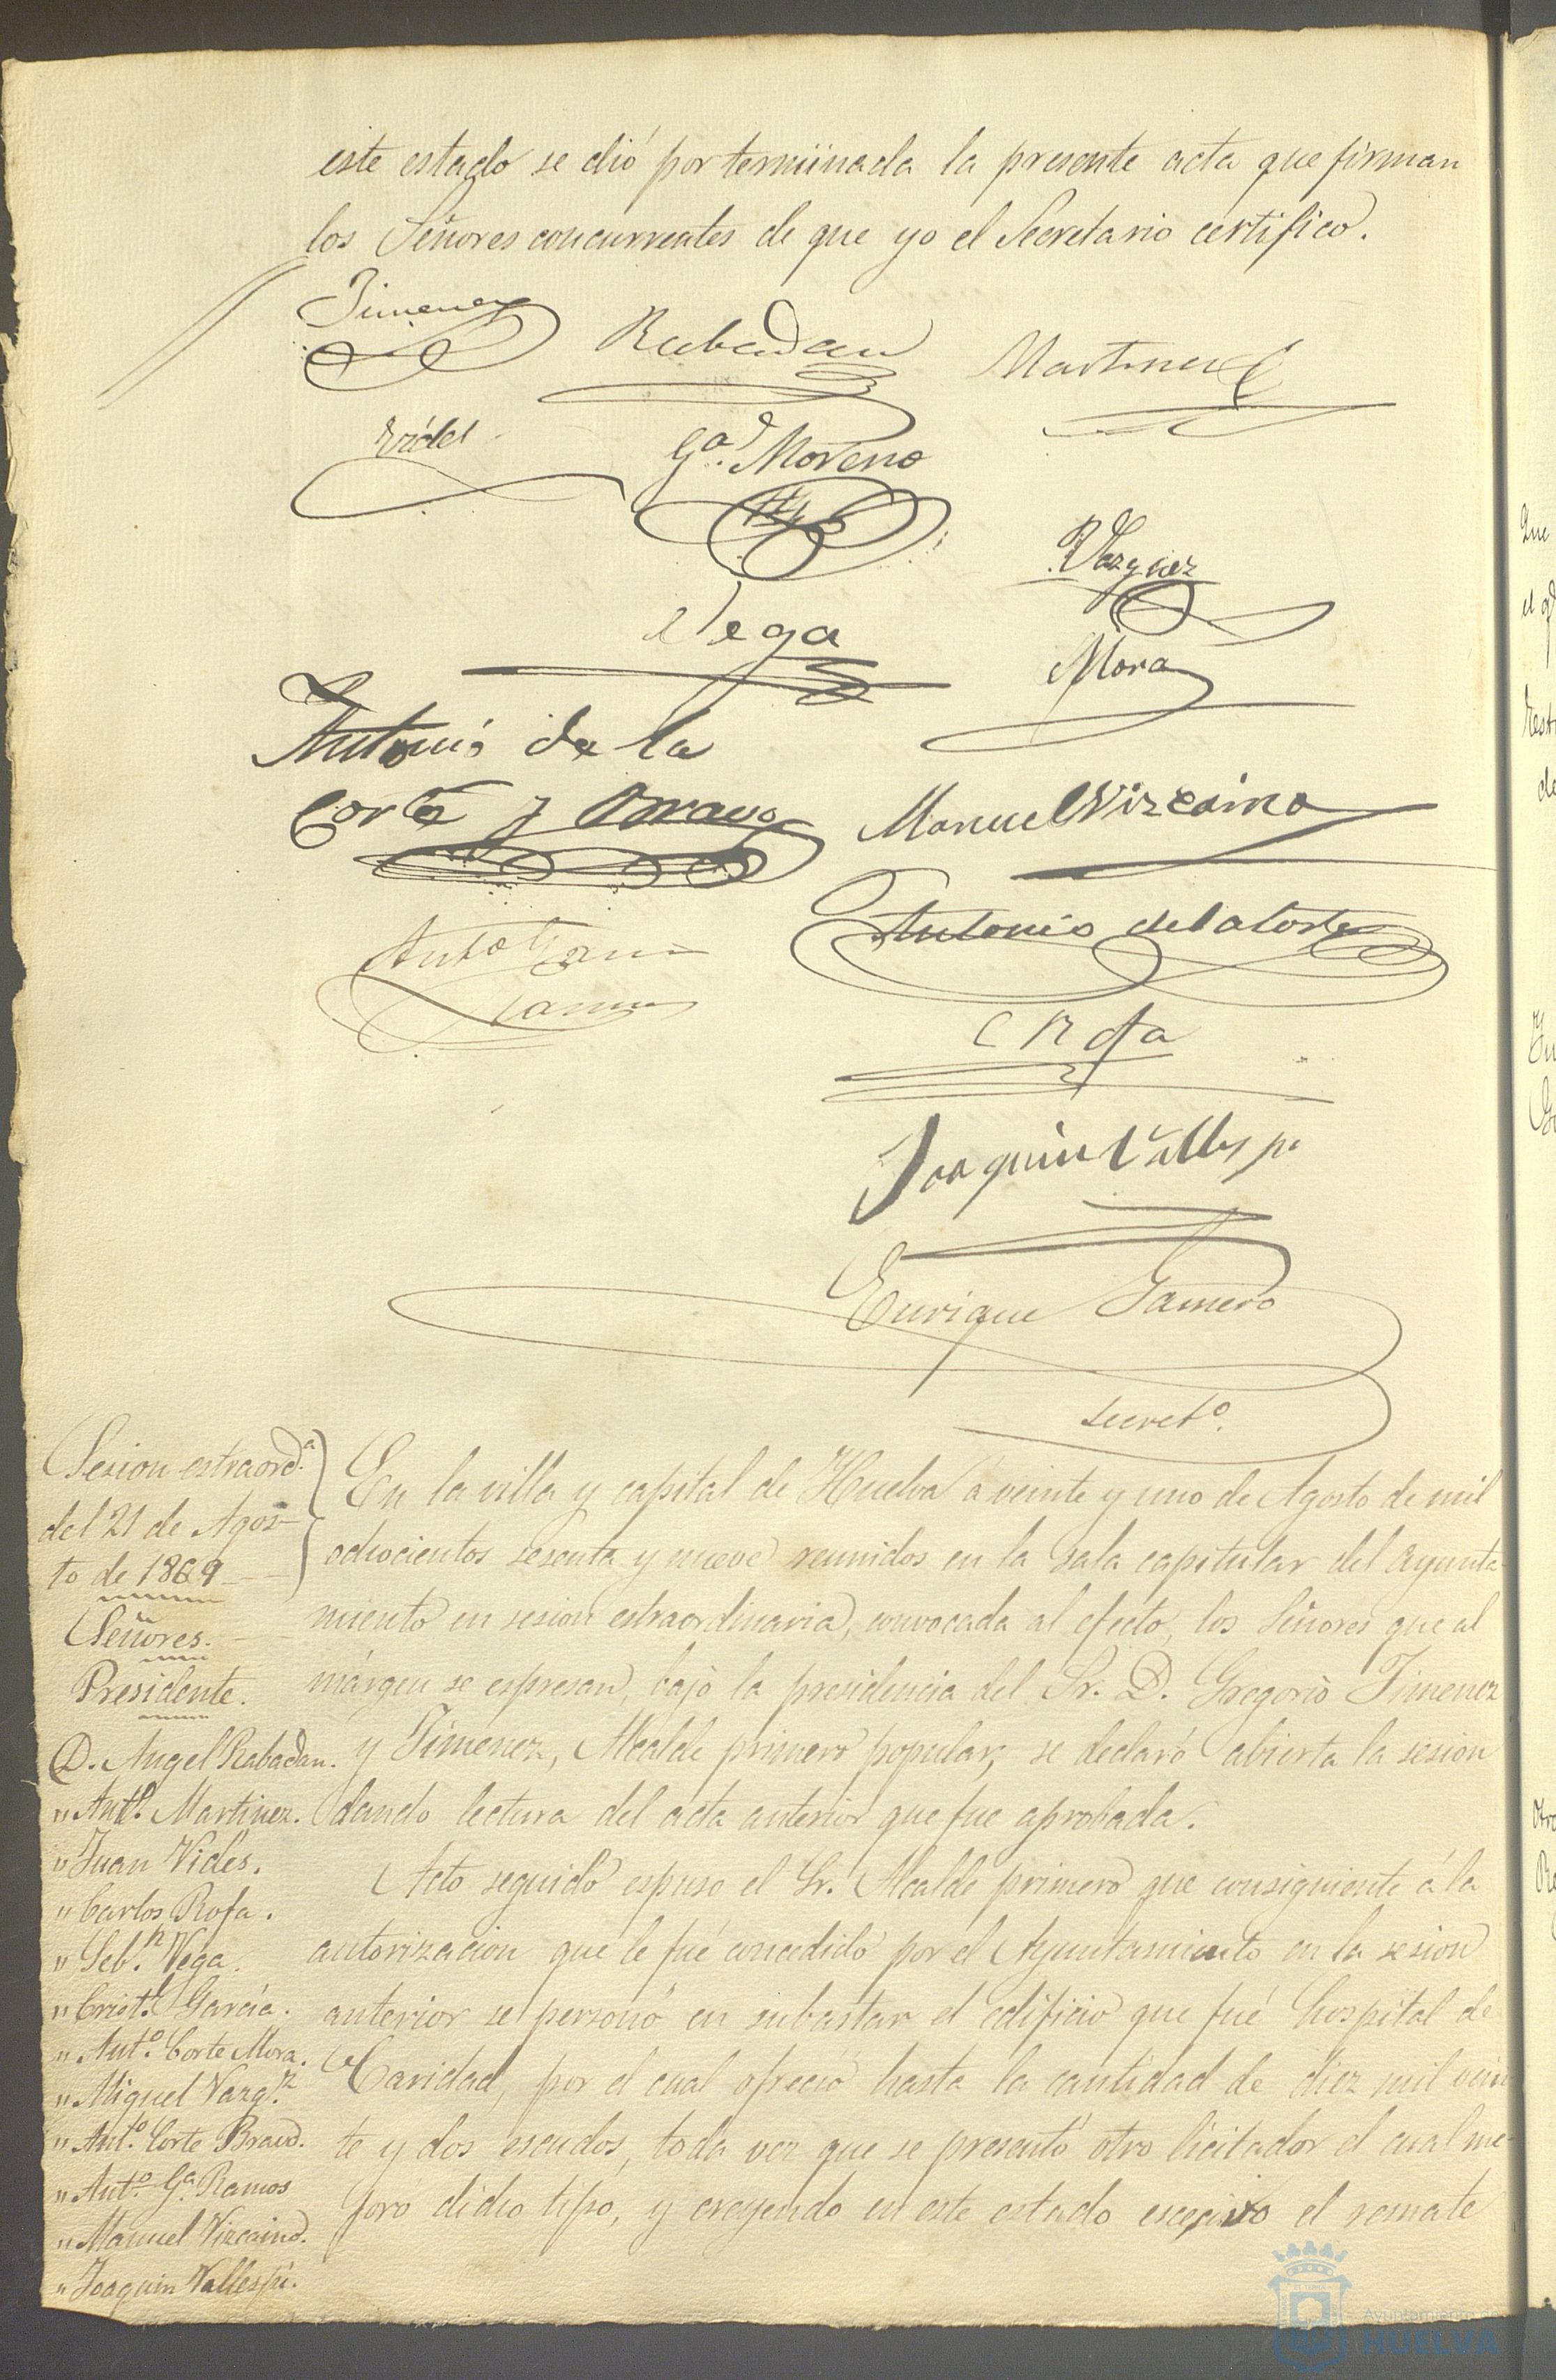 este estado se dió por terminada la presente acta que firman
los Señores concurrentes de que yo el Secretario certifico.
Jimenez
Rabadan
Martinez
Vides
G.ª Moreno
Vazquez
Vega
Mora
Antonio de la
Corte y Bravo
Manuel Vizcaino
Antonio de la Corte
Ant.º Garcia
Ramos
C Rofa
Joaquin Vallespi
Enrique Gamero
Secret.º
Sesion estraord.ª
del 21 de Agos-
to de 1869
Señores.
Presidente.
D. Angel Rabadan.
" Ant.º Martinez.
" Juan Vides.
" Carlos Rofa.
" Seb.n Vega.
" Crist.l García.
" Ant.º Corte Mora.
" Miguel Vazq.z
" Ant.º Corte Bravo.
" Ant.º G.ª Ramos
" Manuel Vizcaino.
" Joaquin Vallespi.
En la villa y capital de Huelva á veinte y uno de Agosto de mil
ochocientos sesenta y nueve reunidos en la sala capitular del Ayunta-
miento en sesion estraordinaria, convocada al efecto, los Señores que al
márgen se espresan, bajo la presidencia del Sr. D. Gregorio Jimenez
y Jimenez, Alcalde primero popular, se declaró abierta la sesion
dando lectura del acta anterior que fue aprobada.
Acto seguido espuso el Sr. Alcalde primero que consiguiente á la
autorizacion que le fué concedido por el Ayuntamiento en la sesion
anterior se personó en subastar el edificio que fué hospital de
Caridad, por el cual ofreció hasta la cantidad de diez mil vein
te y dos escudos, toda vez que se presentó otro licitador el cual me-
joró dicho tipo, y creyendo en este estado escesivo el remate
Ayuntamiento de
HUELVA